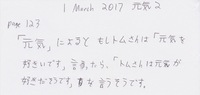 1 March 2017 元気 2
page 123
「元気」によるともしトムさんは「元気を
好きいです」言おたら、「トムさんは元気が
好きだそうです」を言うそうです。